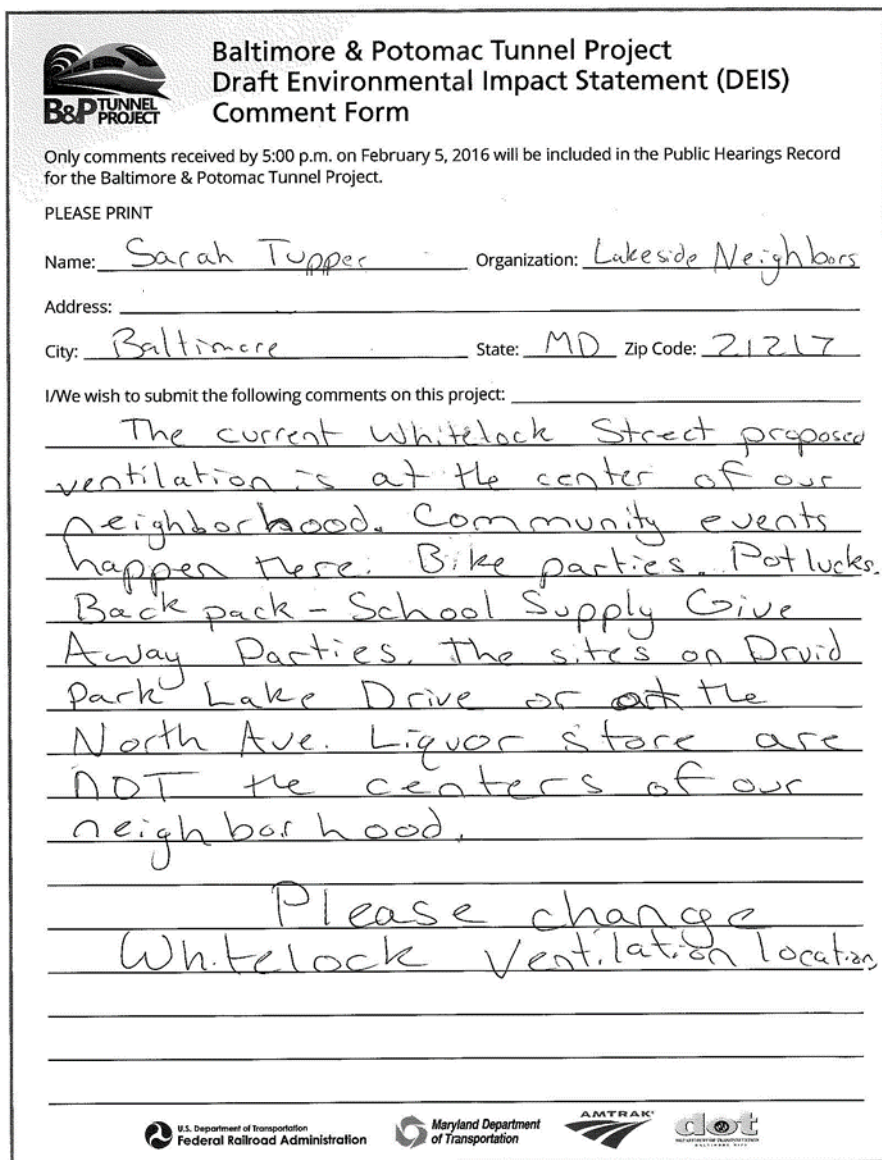 Baltimore & Potomac Tunnel Project
Draft Environmental Impact Statement (DEIS)
Comment Form
B&P TUNNEL PROJECT
Only comments received by 5:00 p.m. on February 5, 2016 will be included in the Public Hearings Record
for the Baltimore & Potomac Tunnel Project.
PLEASE PRINT
Name: Sarah Tupper Organization: Lakeside Neighbors
Address:
City: Baltimore State: MD Zip Code: 21217
I/We wish to submit the following comments on this project:
The current Whitelock Street proposed
ventilation is at the center of our
neighborhood. Community events
happen there. Bike parties. Potlucks.
Back pack - School Supply Give
Away Parties. The sites on Druid
Park Lake Drive or at the
North Ave. Liquor store are
NOT the centers of our
neighborhood.
Please change
Whitelock Ventilation location.
U.S. Department of Transportation
Federal Railroad Administration
Maryland Department
of Transportation
AMTRAK
dot